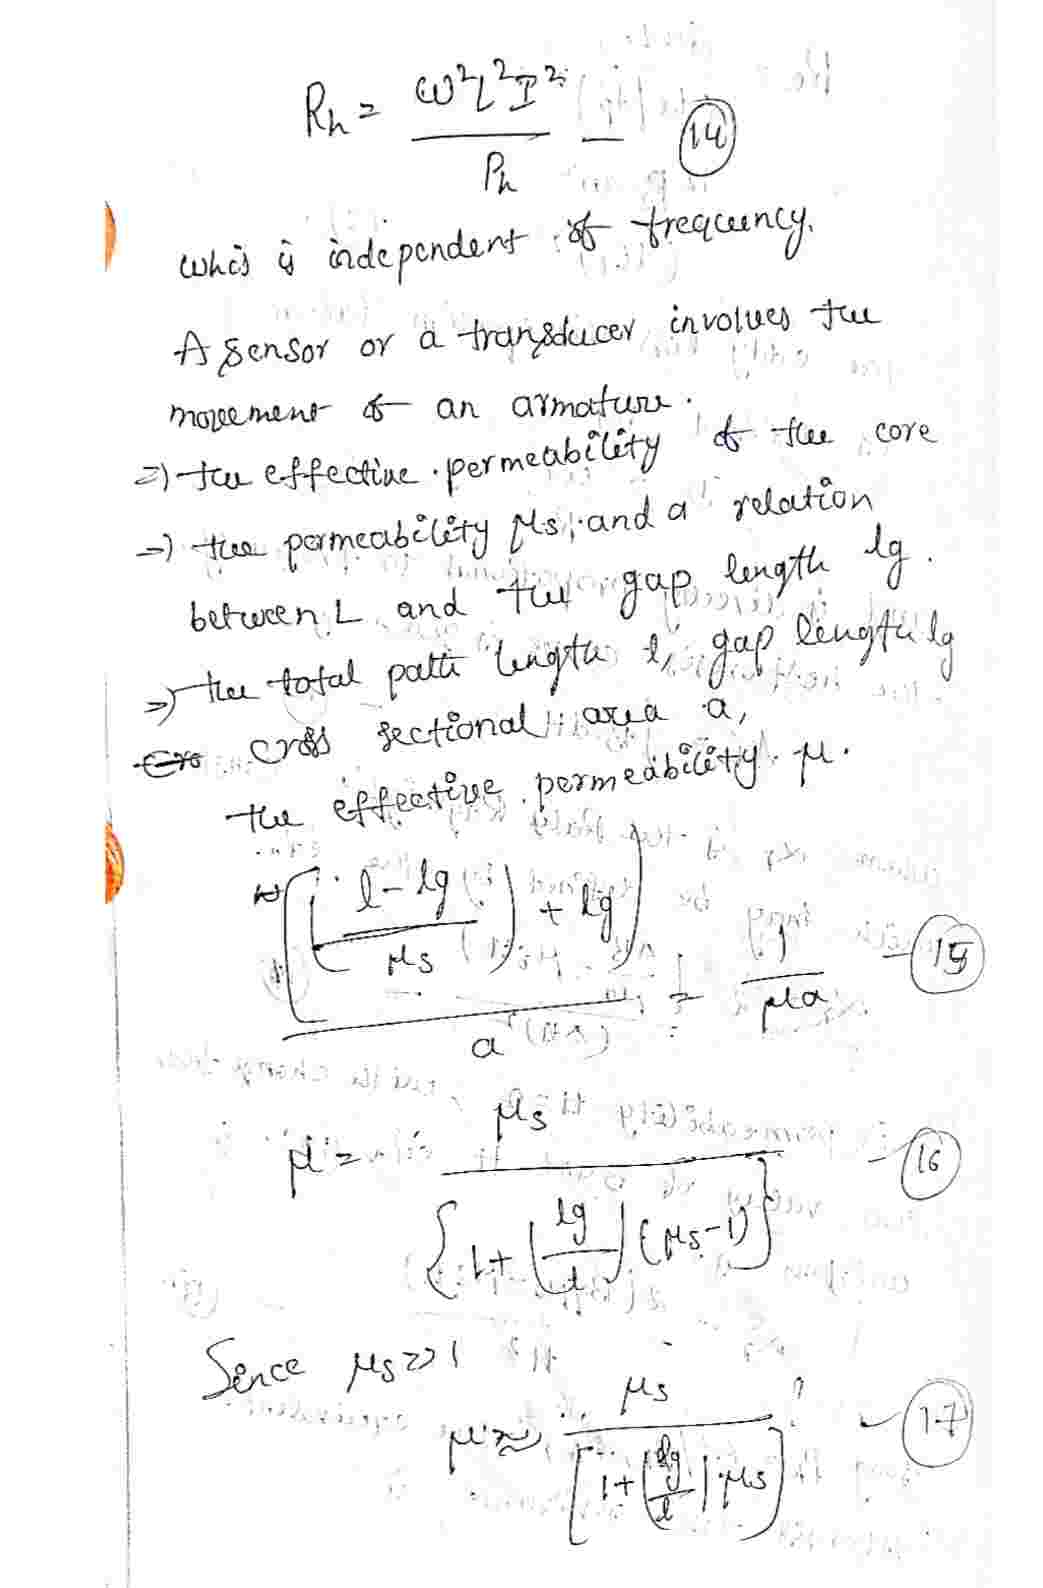 Rh = ω²L²I² / Ph — (14)
whis is independent of frequency.
A sensor or a transducer involves the
movement of an armature.
=) the effective permeability of the core
=) the permeability μs, and a relation
between L and the gap length lg.
=) the total path length l, gap length lg
cross sectional area a,
the effective permeability μ.
[((l - lg) / μs) + lg] / a = l / μa — (15)
μ = μs / {1 + (lg / l) (μs - 1)} — (16)
Since μs >> 1
μ ≈ μs / [1 + (lg / l) μs] — (17)